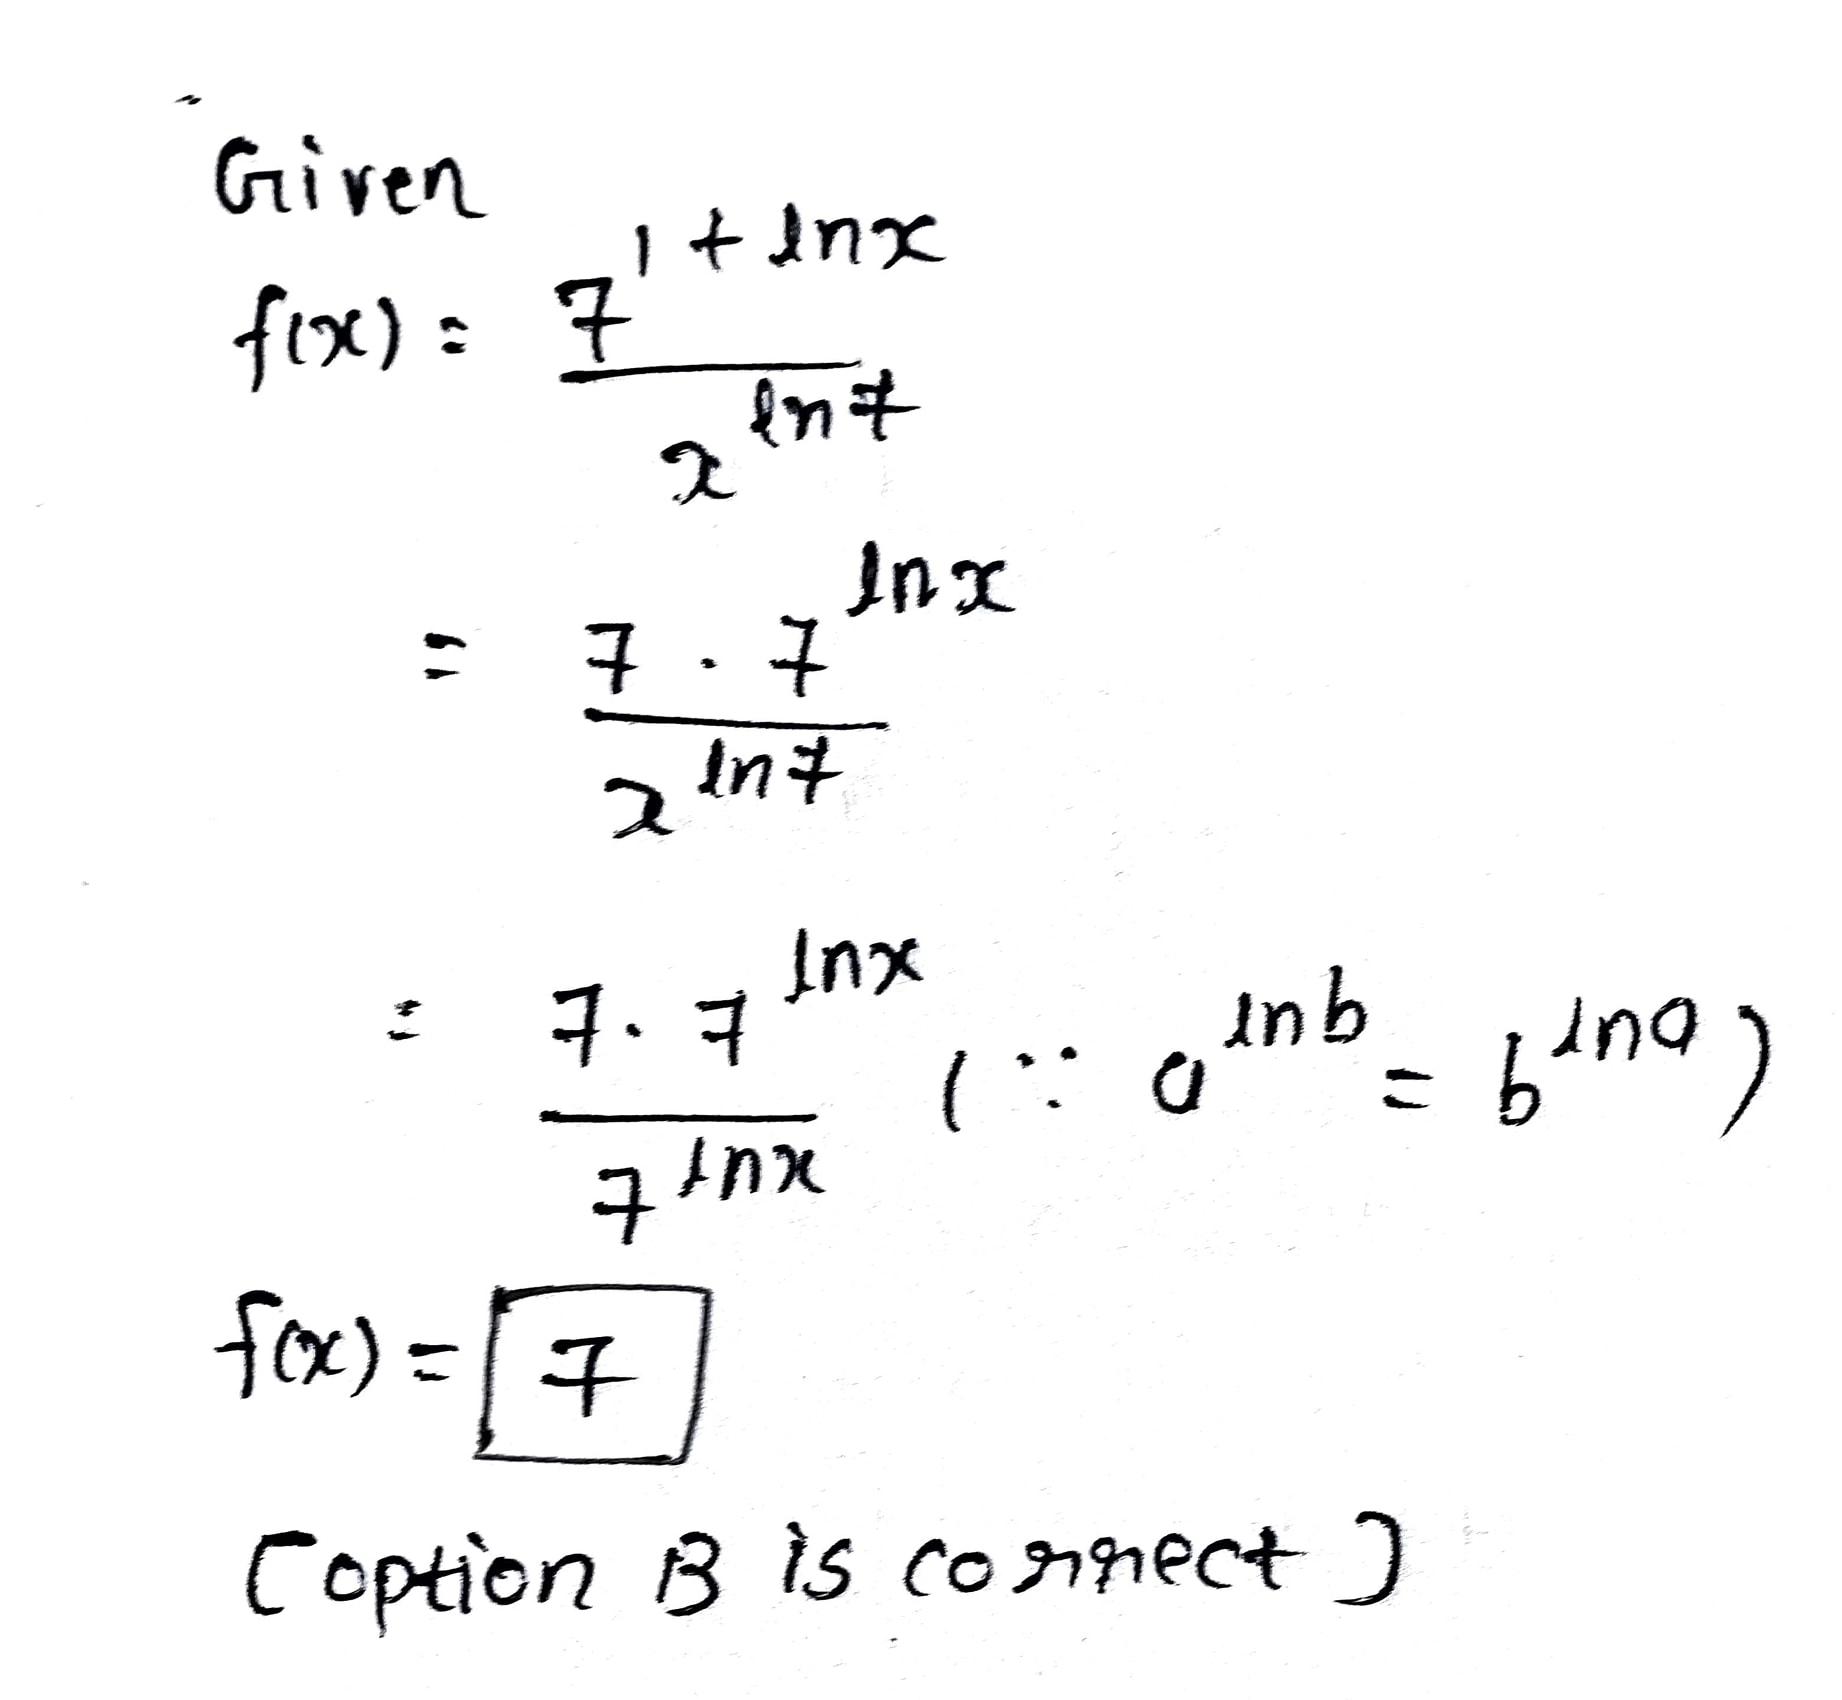 Given
f(x) = 7^{1 + ln x} / x^{ln 7}
= 7 . 7^{ln x} / x^{ln 7}
= 7 . 7^{ln x} / 7^{ln x} (∵ a^{ln b} = b^{ln a})
f(x) = 7
[option B is correct]